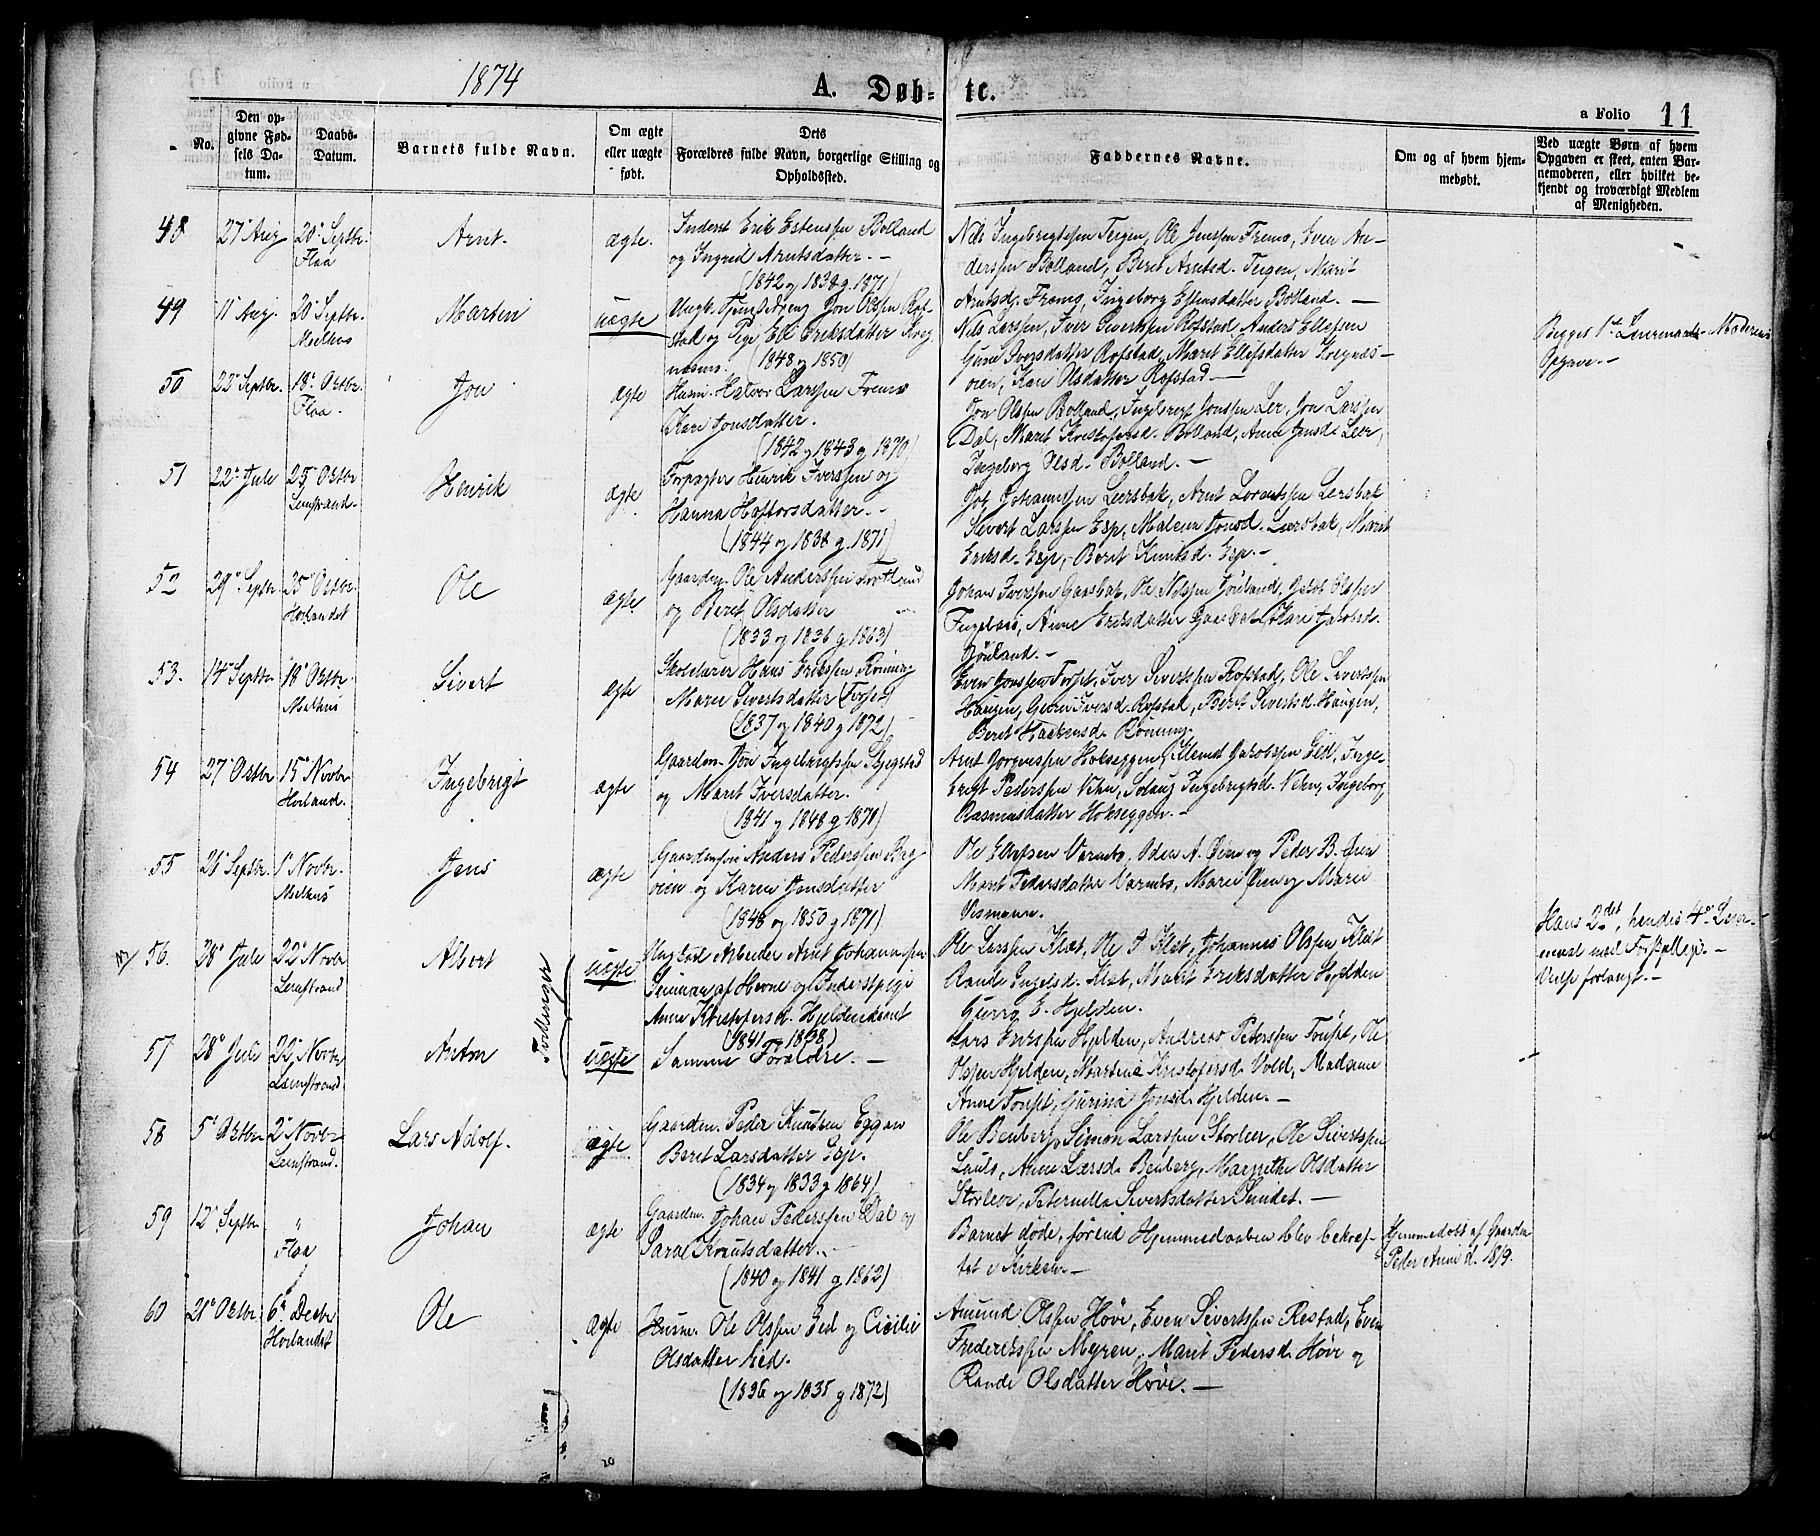 1874
A. Døb- te.
a Folio 11
No.
Den op-
givne Fød-
sels Da-
tum.
Daabs-
Datum.
Barnets fulde Navn.
Om ægte
eller uægte
født.
Dets
Forældres fulde Navn, borgerlige Stilling og
Opholdssted.
Faddernes Navne.
Om og af hvem hjem-
mebøbt.
Ved uægte Børn af hvem
Opgaven er skeet, enten Bar-
nemoderen, eller hvilket be-
kjendt og troværdigt Medlem
af Menigheden.
48
27 Aug
20 Septbr.
Flaa
Arnt.
ægte.
Inderst Erik Estenssen Bolland
og Ingrid Arntsdatter. —
(1842 og 1838 g. 1871)
Nils Ingebrigtssen Teigen, Ole Jenssen Fremo, Even An-
derssen Bolland, Beret Arntsd. Teigen, Marit
Arntsd. Fremo, Ingeborg Estensdatter Bolland. —
49
11 Aug.
20 Septbr.
Melhus
Martin
uægte
Ungk. Tjenestedreng Jon Olssen Rof-
stad og Pige Eli Eriksdatter
(1848 og 1850)
Nils Larssen, Iver Sivertssen Rofstad, Anders Ellefsen
Guru Iversdatter Rofstad, Marit Ellefsdatter
øien, Kari Olsdatter Rofstad. —
Begges 1ste Leiermaal Moderens
Opgave. —
50
22 Septbr.
18 Octbr.
Flaa.
Jon
ægte
Husm. Halvor Larssen Fremo
Kari Jonsdatter.
(1842 og 1843 g 1870)
Jon Olssen Bolland, Ingebrigt Jonssen Ler, Jon Larssen
Dal, Marit Kristofersd. Bolland, Anne Jonsd. Leer,
Ingeborg Olsd. Bolland. —
51
22 Juli
25 Octbr
Leinstrand.
Henrik
ægte
Forpagter Henrik Iverssen og
Hanna Haftorsdatter. —
(1844 og 1838 g. 1871)
Johannessen Leersbak, Arnt Lorentssen Lersbak
Sivert Larssen Esp, Malena Jonsd. Leersbak, Marit
Eriksd. Esp, Berit Knutsd. Esp. —
52
29 Septbr
25 Octbr
Horlandet
Ole
ægte
Gaardm. Ole Anderssen
og Beret Olsdatter
(1833 og 1836 g 1863)
Johan Iverssen Gaasbak, Ole Nilssen Olssen
Anne Eriksdatter Gaasbak, Kari Jakobsd.
53.
14 Septbr
18 Octbr.
Melhus
Sivert
ægte
Skolelærer Hans Erikssen Röning
Marie Sivertsdatter
(1837 og 1840 g 1872)
Even Jonssen Iver Sivertssen Rofstad, Ole Sivertssen
Haugen, Guru Iversd. Rofstad, Beret Sivertsd. Haugen,
Beret Haakensd. Röning.
54
27 Octbr
15 Novbr
Horland.
Ingebrigt
ægte
Gaardm. Jon Ingebrigtssen
og Marit Iversdatter.
(1841 og 1848 g 1870)
Arnt Hokseggen, Jakobssen Inge-
brigt Pederssen Vehn, Solaug Ingebrigtsd. Vehn, Ingeborg
Rasmusdatter Hokseggen. —
55
26 Septbr.
1 Novbr.
Melhus
Jens
ægte
Anders Pederssen Bag
øien og Karen Jonsdatter
(1848 og 1850 g 1871)
Ole Ellefsen Varmbo, Oden A. Øien og Peder B. Øien
Marit Pedersdatter Varmbo, Marie Øien og Marie
56.
28 Juli
22 Novbr
Leinstrand
Albert
Tvillinger
uægte
Arbeider Arnt Johannessen
af Hevne og Inderstpige
Anne
(1841 1838)
Ole Larssen Klæt, Ole Klæt, Johannes Olssen Klæt
Randi Ingelsd. Klæt, Marit Eriksdatter Hjelden
Gurro E. Hjelden.
Hans 2det, hendes 4de Leier-
maal med
Vielse forlangt. —
57
28 Juli
22 Novbr
Leinstrand
Anton
uægte
Samme Forældre. —
Lars Erikssen Hjelden, Andreas Peterssen Ole
Olssen Hjelden, Martina Kristofersd. Vold, Madame
Anne Gurina Jonsd. Hjelden. —
58
5 Octbr
2 Novbr
Leinstrand.
Lars Adolf.
ægte
Gaardm. Peder Knudsen Eggen
Beret Larsdatter Esp.
(1834 og 1833 g 1864)
Ole Benberg, Simon Larssen Storler, Ole Sivertssen
Anne Larsd. Benberg, Olsdatter
Storler, Peternella Sivertsdatter Sundet. —
59
12 Septbr
"
Flaa
Johan
ægte
Gaardm. Johan Pederssen Dal og
Sara Knutsdatter. —
(1840 og 1841 g 1862)
Barnet døde, førend Hjemmedaaben blev bekræf-
tet i Kirken. —
Hjemmedøbt af Gaardm
Peder d. 18/9.
60
21 Octbr.
6 Decbr
Horlandet
Ole
ægte
Husm. Ole Olssen og Cicilie
Olsdatter
(1836 og 1835 g 1872)
Amund Olssen Høve, Even Sivertssen Restad, Even
Frederikssen Myren, Marit Pedersd. Høve og
Randi Olsdatter Høve. —